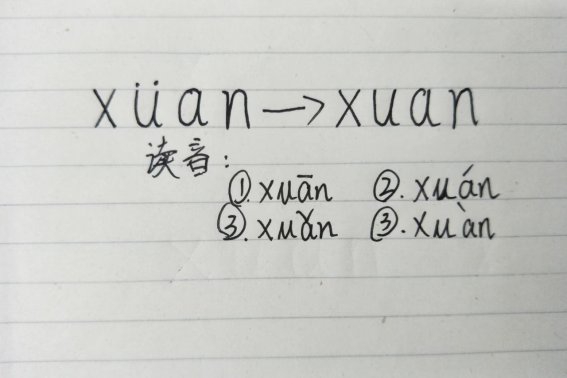 xüan→xuan
读音:
①.xuān ②.xuán
③.xuǎn ③.xuàn